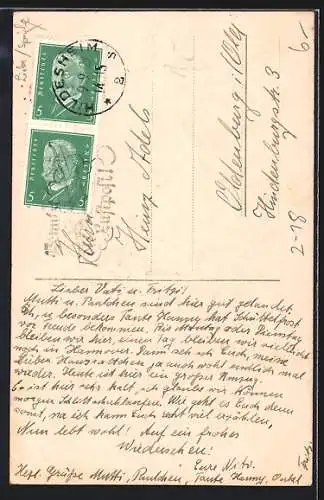 HILDESHEIM
2
DEUTSCHES REICH
5
5
DEUTSCHES REICH
5
5
Luftpost!
Heinz Adels
Oldenburg i/Olbg
Hindenburgstr. 3
6-
2-18
Lieber Vati u. Fritzi!
Mutti u. Paulchen sind hier gut gelandet.
u. besonders Tante Henny hat
Freude bekommen. Bis Montag oder Dienstag
bleiben wir hier, einen Tag bleiben wir vielleicht
noch in Hannover. Dann sehe ich Euch, meine
lieben ja auch wohl endlich mal
wieder. Heute ist hier ein großer Umzug.
Es ist hier sehr kalt, ich glaube wir können
morgen Schlittschuhlaufen. Wie geht es Euch denn
sonst, na ich kann Euch recht viel erzählen,
Nun lebt wohl! Auf ein frohes
Wiedersehen!
Eure
Herzl. Grüße Mutti, Paulchen, Tante Henny, Onkel
Fritz.